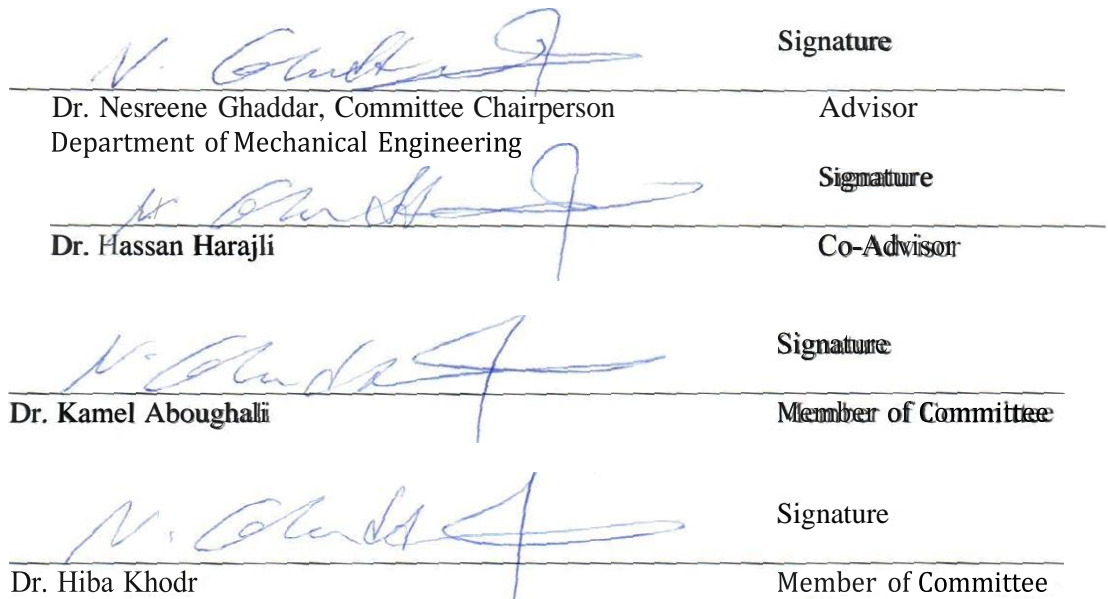 N. Ghaddar Signature
Dr. Nesreene Ghaddar, Committee Chairperson Advisor
Department of Mechanical Engineering
N. Ghaddar Signature
Dr. Hassan Harajli Co-Advisor
N. Ghaddar Signature
Dr. Kamel Aboughali Member of Committee
N. Ghaddar Signature
Dr. Hiba Khodr Member of Committee